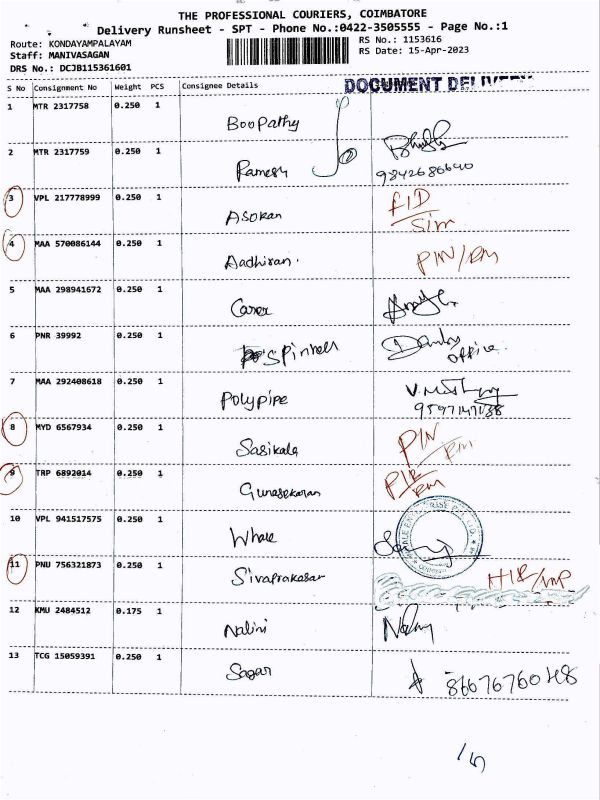 THE PROFESSIONAL COURIERS, COIMBATORE
Delivery Runsheet - SPT - Phone No.:0422-3505555 - Page No.:1
Route: KONDAYAMPALAYAM RS No.: 1153616
Staff: MANIVASAGAN RS Date: 15-Apr-2023
DRS No.: DCJB115361601
S No Consignment No Weight PCS Consignee Details DOCUMENT DELIVERY
1 MTR 2317758 0.250 1
Boopathy
2 MTR 2317759 0.250 1
Ramesh 9842686640
3 VPL 217778999 0.250 1
Asokan
4 MAA 570086144 0.250 1
Aadhiran. PIN/RM
5 MAA 298941672 0.250 1
6 PNR 39992 0.250 1
Spinhells
office
7 MAA 292408618 0.250 1
Polypipe
8 MYD 6567934 0.250 1
Sasikala PIN/RM
9 TRP 6892014 0.250 1
Gunasekaran
10 VPL 941517575 0.250 1
Whale
11 PNU 756321873 0.250 1
Sivaprakasar
12 KMU 2484512 0.175 1
Nalini
13 TCG 15059391 0.250 1
Sagar